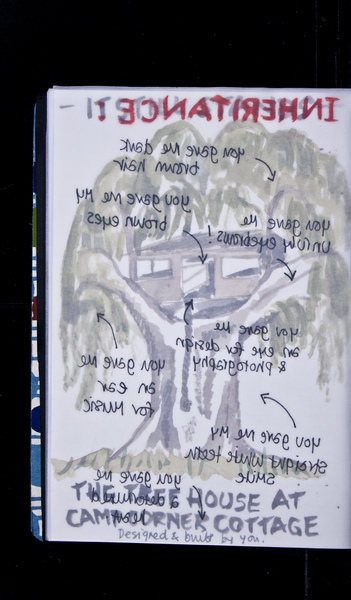 INHERITANCE :
you gave me dark
brown hair
you gave me my
brown eyes
you gave me
unruly eyebrows!
you gave me
an eye for design
& photography
you gave me
an ear
for music
you gave me my
straight white teeth
smile
you gave me
a determined
THE TREE HOUSE AT
CORNER COTTAGE
Designed & built by you.